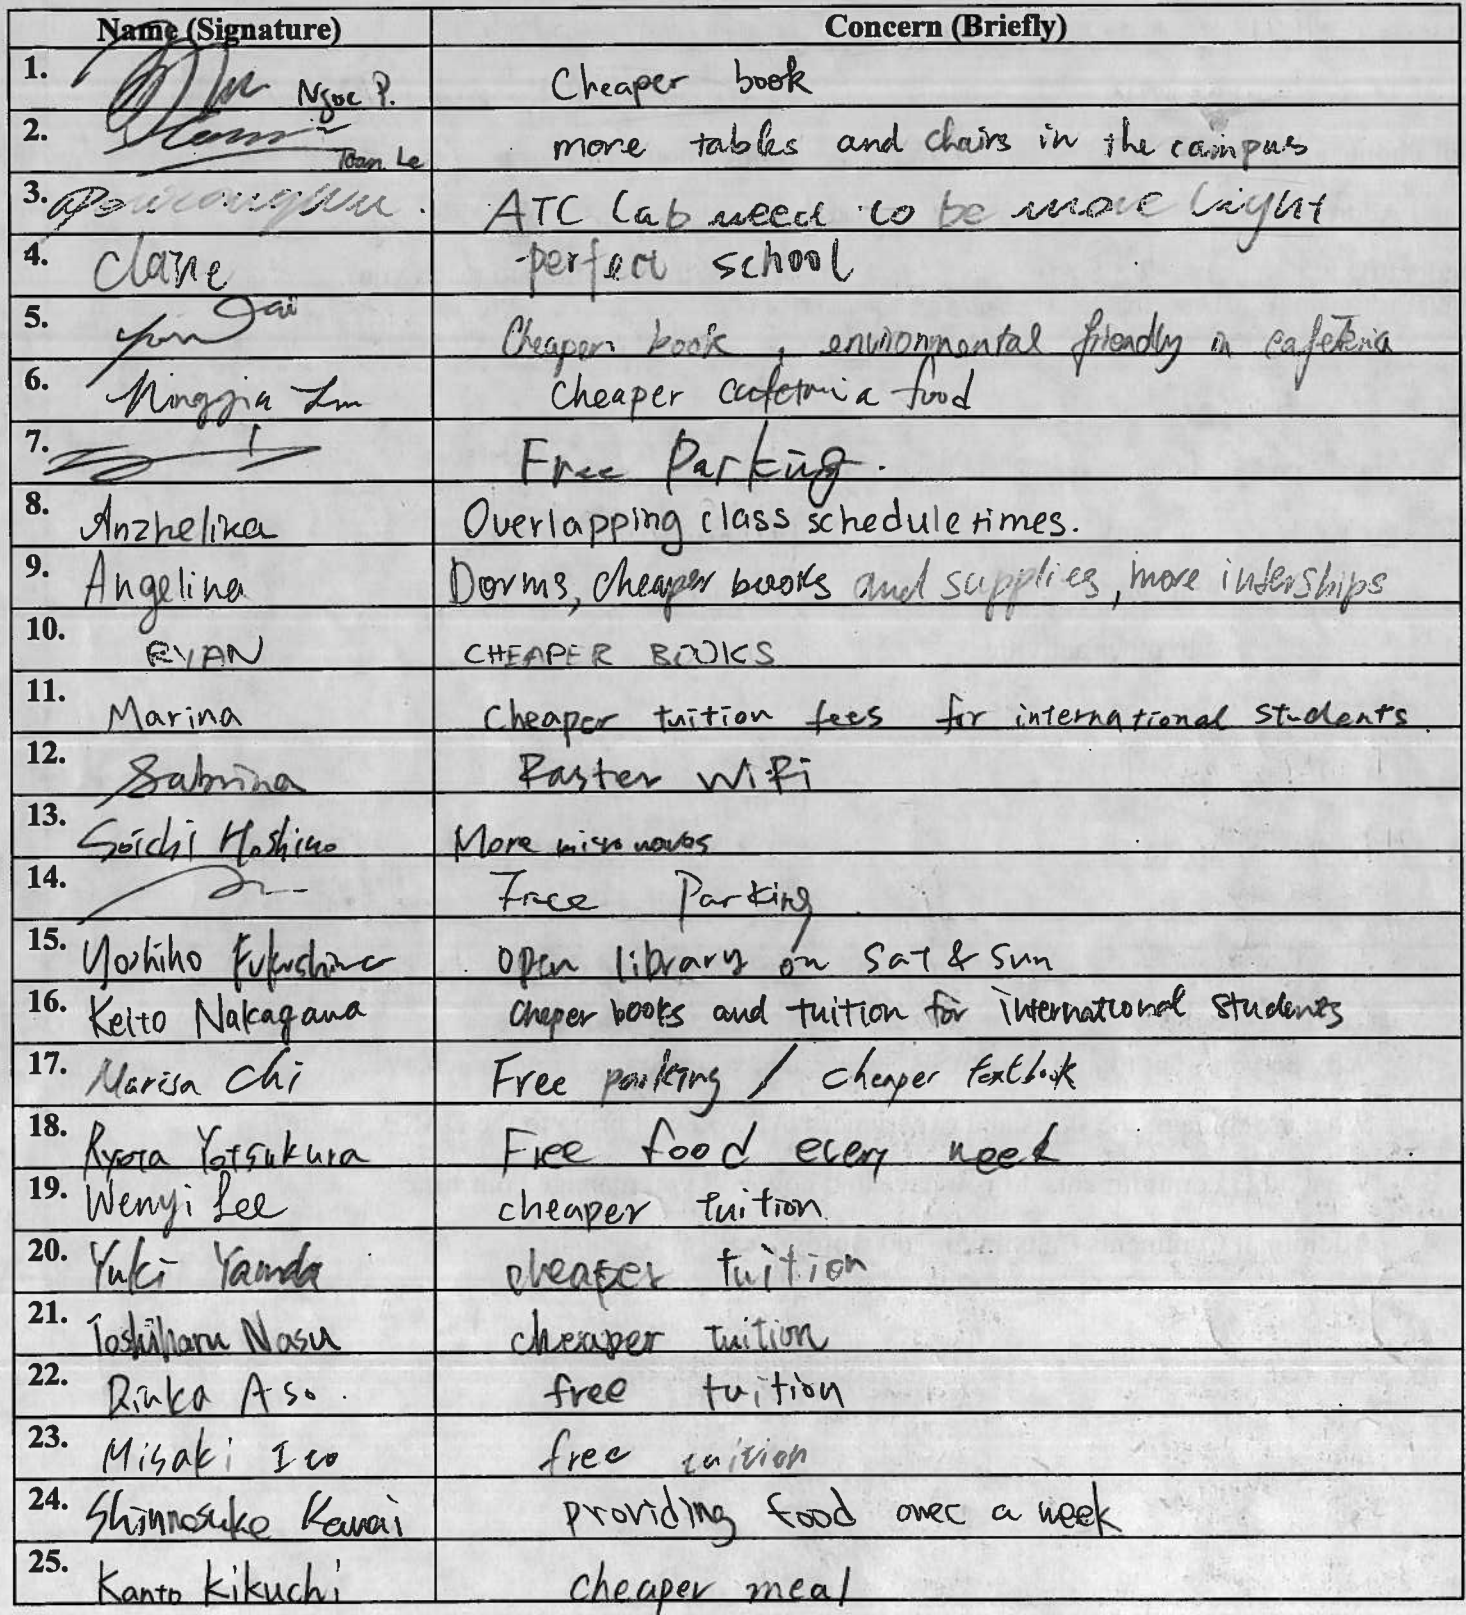 Name (Signature) Concern (Briefly)
1. Ngoc P. Cheaper book
2. Toan Le more tables and chairs in the campus
3. ATC Lab need to be more light
4. Claire perfect school
5. Cheaper book, environmental friendly in cafeteria
6. Cheaper cafeteria food
7. Free Parking.
8. Anzhelika Overlapping class schedule times.
9. Angelina Dorms, cheaper books and supplies, more interships
10. RYAN CHEAPER BOOKS
11. Marina Cheaper tuition fees for international students
12. Sabrina Faster WiFi
13. Soichi Hoshino More microwaves
14. Free Parking
15. Yoshiho Fukushima open library on Sat & Sun
16. Keito Nakagawa cheper books and tuition for international students
17. Marisa Chi Free parking / cheaper textbook
18. Ryota Yotsukura Free food every week
19. Wenyi Lee cheaper tuition
20. Yuki Yamada cheaper tuition
21. Toshiharu Nasu cheaper tuition
22. Rinka Aso free tuition
23. Misaki Ito free tuition
24. Shinnosuke Kawai providing food once a week
25. Kanto Kikuchi cheaper meal